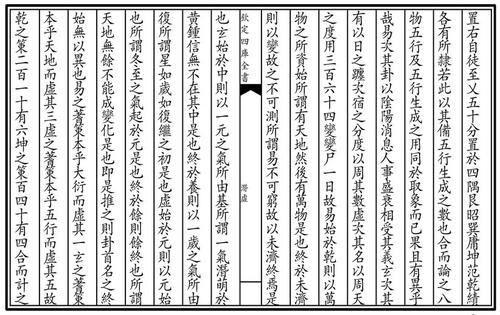 置右自徒至乂五十分置於四隅艮昭巽庸坤范乾績
各有所隸若此以其備五行生成之數也合而論之八
物五行及五行生成之用同於取象而已果且有異乎
哉易次其卦以陰陽消息人事盛衰相受其義玄次其
有以日之躔次宿之分度以周其數虛次其名以周天
之度用三百六十四變變尸一日故易始於乾則以萬
物之所資始所謂有天地然後有萬物是也終於未濟
則以變故之不可測所謂易不可窮故以未濟終焉是
欽定四庫全書
潛虛
也玄始於中則以一元之氣所由基所謂一氣潛萌於
黃鍾信無不在其中是也終於養則以一歲之氣所由
復所謂星如歲如復繼之初是也虛始於元則以元始
也所謂冬至之氣起於元是也終於餘則餘終也所謂
天地無餘不能成變化是也即是推之則卦首名之終
始無以異也易之蓍策本乎大衍而虛其一玄之蓍策
本乎天地而虛其三虛之蓍策本乎五行而虛其五故
乾之策二百一十有六坤之策百四十有四合而計之